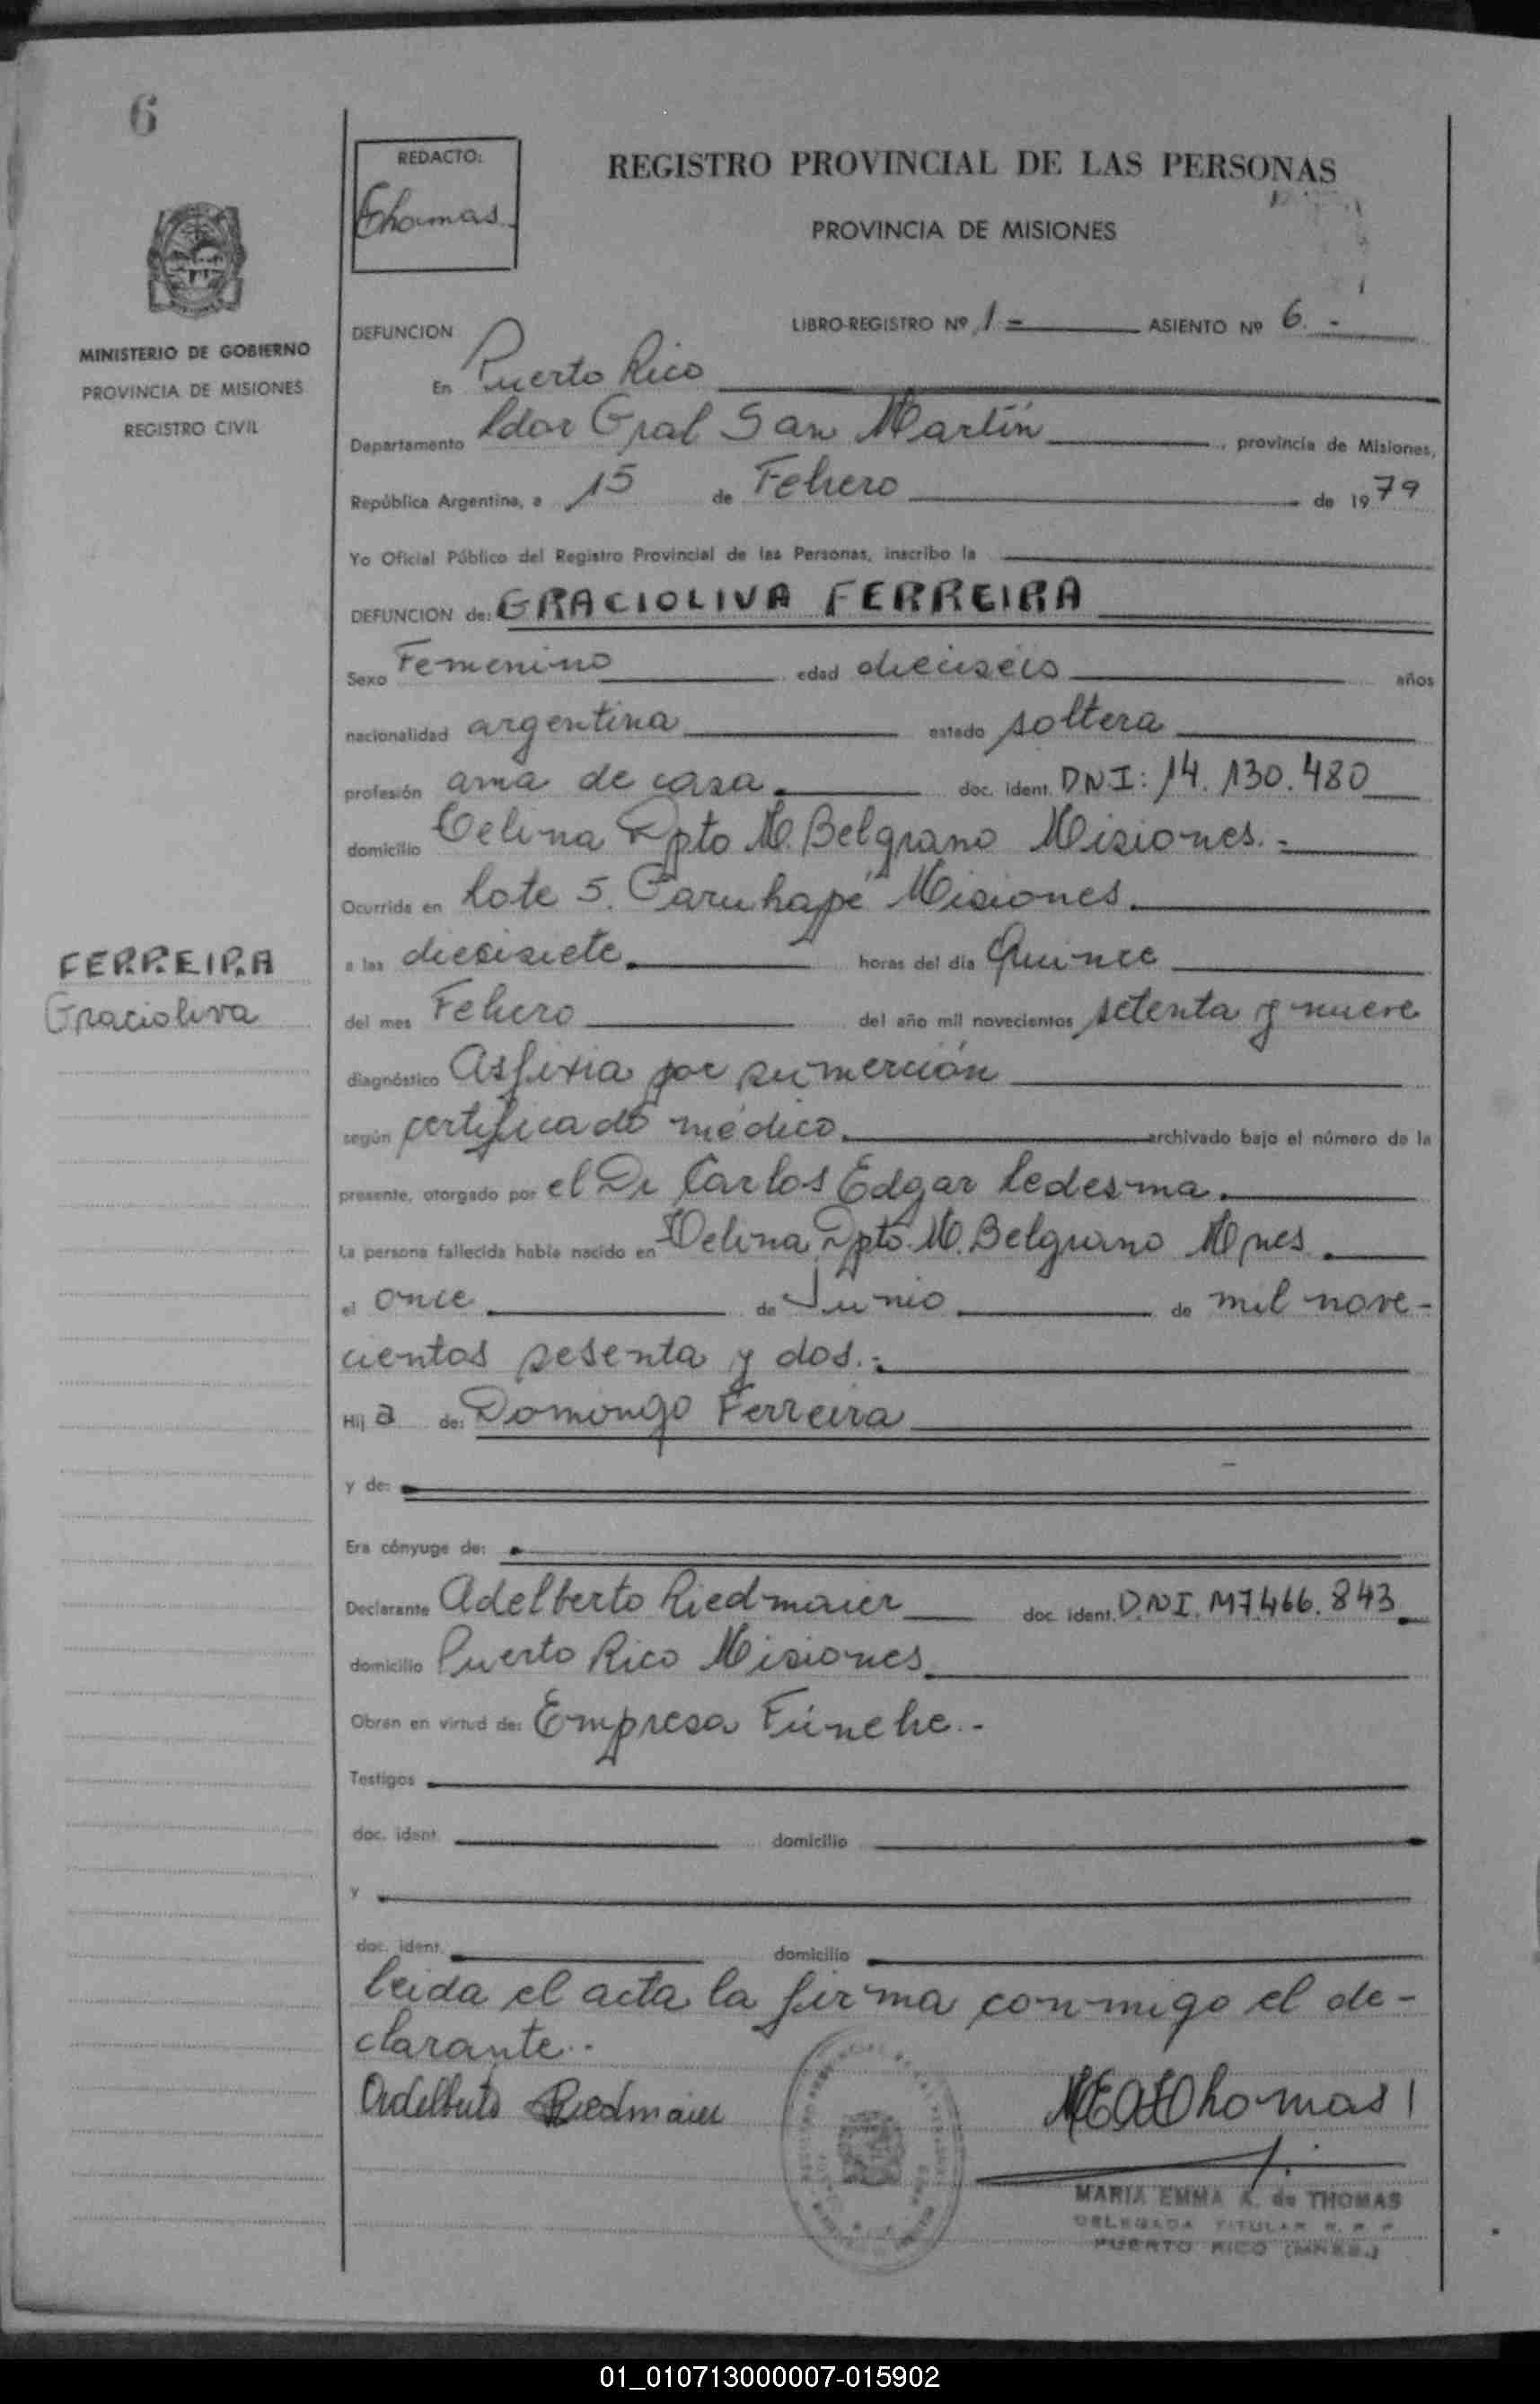 6
REDACTO:
Thomas
REGISTRO PROVINCIAL DE LAS PERSONAS
PROVINCIA DE MISIONES
MINISTERIO DE GOBIERNO
PROVINCIA DE MISIONES
REGISTRO CIVIL
DEFUNCION
LIBRO-REGISTRO Nº 1 - ASIENTO Nº 6. -
En Puerto Rico
Departamento Ldor Gral San Martín , provincia de Misiones,
República Argentina, a 15 de Febrero de 1979
Yo Oficial Público del Registro Provincial de las Personas, inscribo la
DEFUNCION de: GRACIOLIVA FERREIRA
Sexo Femenino edad dieciseis años
nacionalidad argentina estado soltera
profesión ama de casa. doc. ident. DNI: 14.130.480
domicilio Delina Dpto M. Belgrano Misiones. -
Ocurrida en Lote 5. Caruhapé Misiones.
FERREIRA
Gracioliva
a las diecisiete. horas del día Quince
del mes Febrero del año mil novecientos setenta y nueve
diagnóstico Asfixia por sumerción
según certificado médico. archivado bajo el número de la
presente, otorgado por el Dr Carlos Edgar Ledesma.
La persona fallecida había nacido en Delina Dpto. M. Belgrano Mnes.
el once de Junio de mil nove-
cientos sesenta y dos. -
Hij a de: Domingo Ferreira
y de:
Era cónyuge de:
Declarante Adelberto Riedmaier doc. ident. D.N.I. M7.466.843
domicilio Puerto Rico Misiones
Obran en virtud de: Empresa Fúnebre. -
Testigos
doc. ident. domicilio
y
doc. ident. domicilio
leida el acta la firma conmigo el de-
clarante. -
Adelberto Riedmaier
MEAdThomas
MARIA EMMA A. de THOMAS
DELEGADA TITULAR R. P. P
PUERTO RICO (MNES.)
01_010713000007-015902